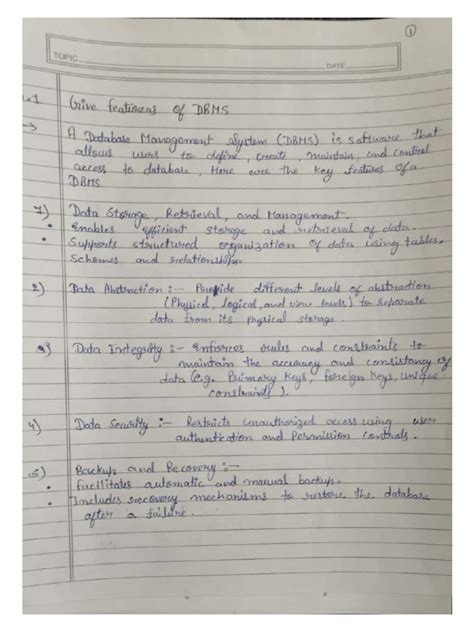 1
TOPIC
DATE
Give features of DBMS
→ A Database Management System (DBMS) is software that
allows users to define, create, maintain, and control
access to database, Here are the key features of a
DBMS
1) Data Storage, Retrieval, and Management.
• Enables efficient storage and retrieval of data.
• Supports structured organization of data using tables,
Schemes and relationships.
2) Data Abstraction :- Provide different levels of abstraction
(Physical, Logical, and view levels) to separate
data from its physical storage
3) Data Integrity :- Enforces rules and constraints to
maintain the accuracy and consistancy of
data (e.g. Primary Keys, foreign Keys, unique
constraints).
4) Data Security :- Restricts unauthorized access using user
authentication and Permission controls.
5) Backup and Recovery :-
• facilitates automatic and manual backup.
• Includes recovery mechanisms to restore the database
after a failure.